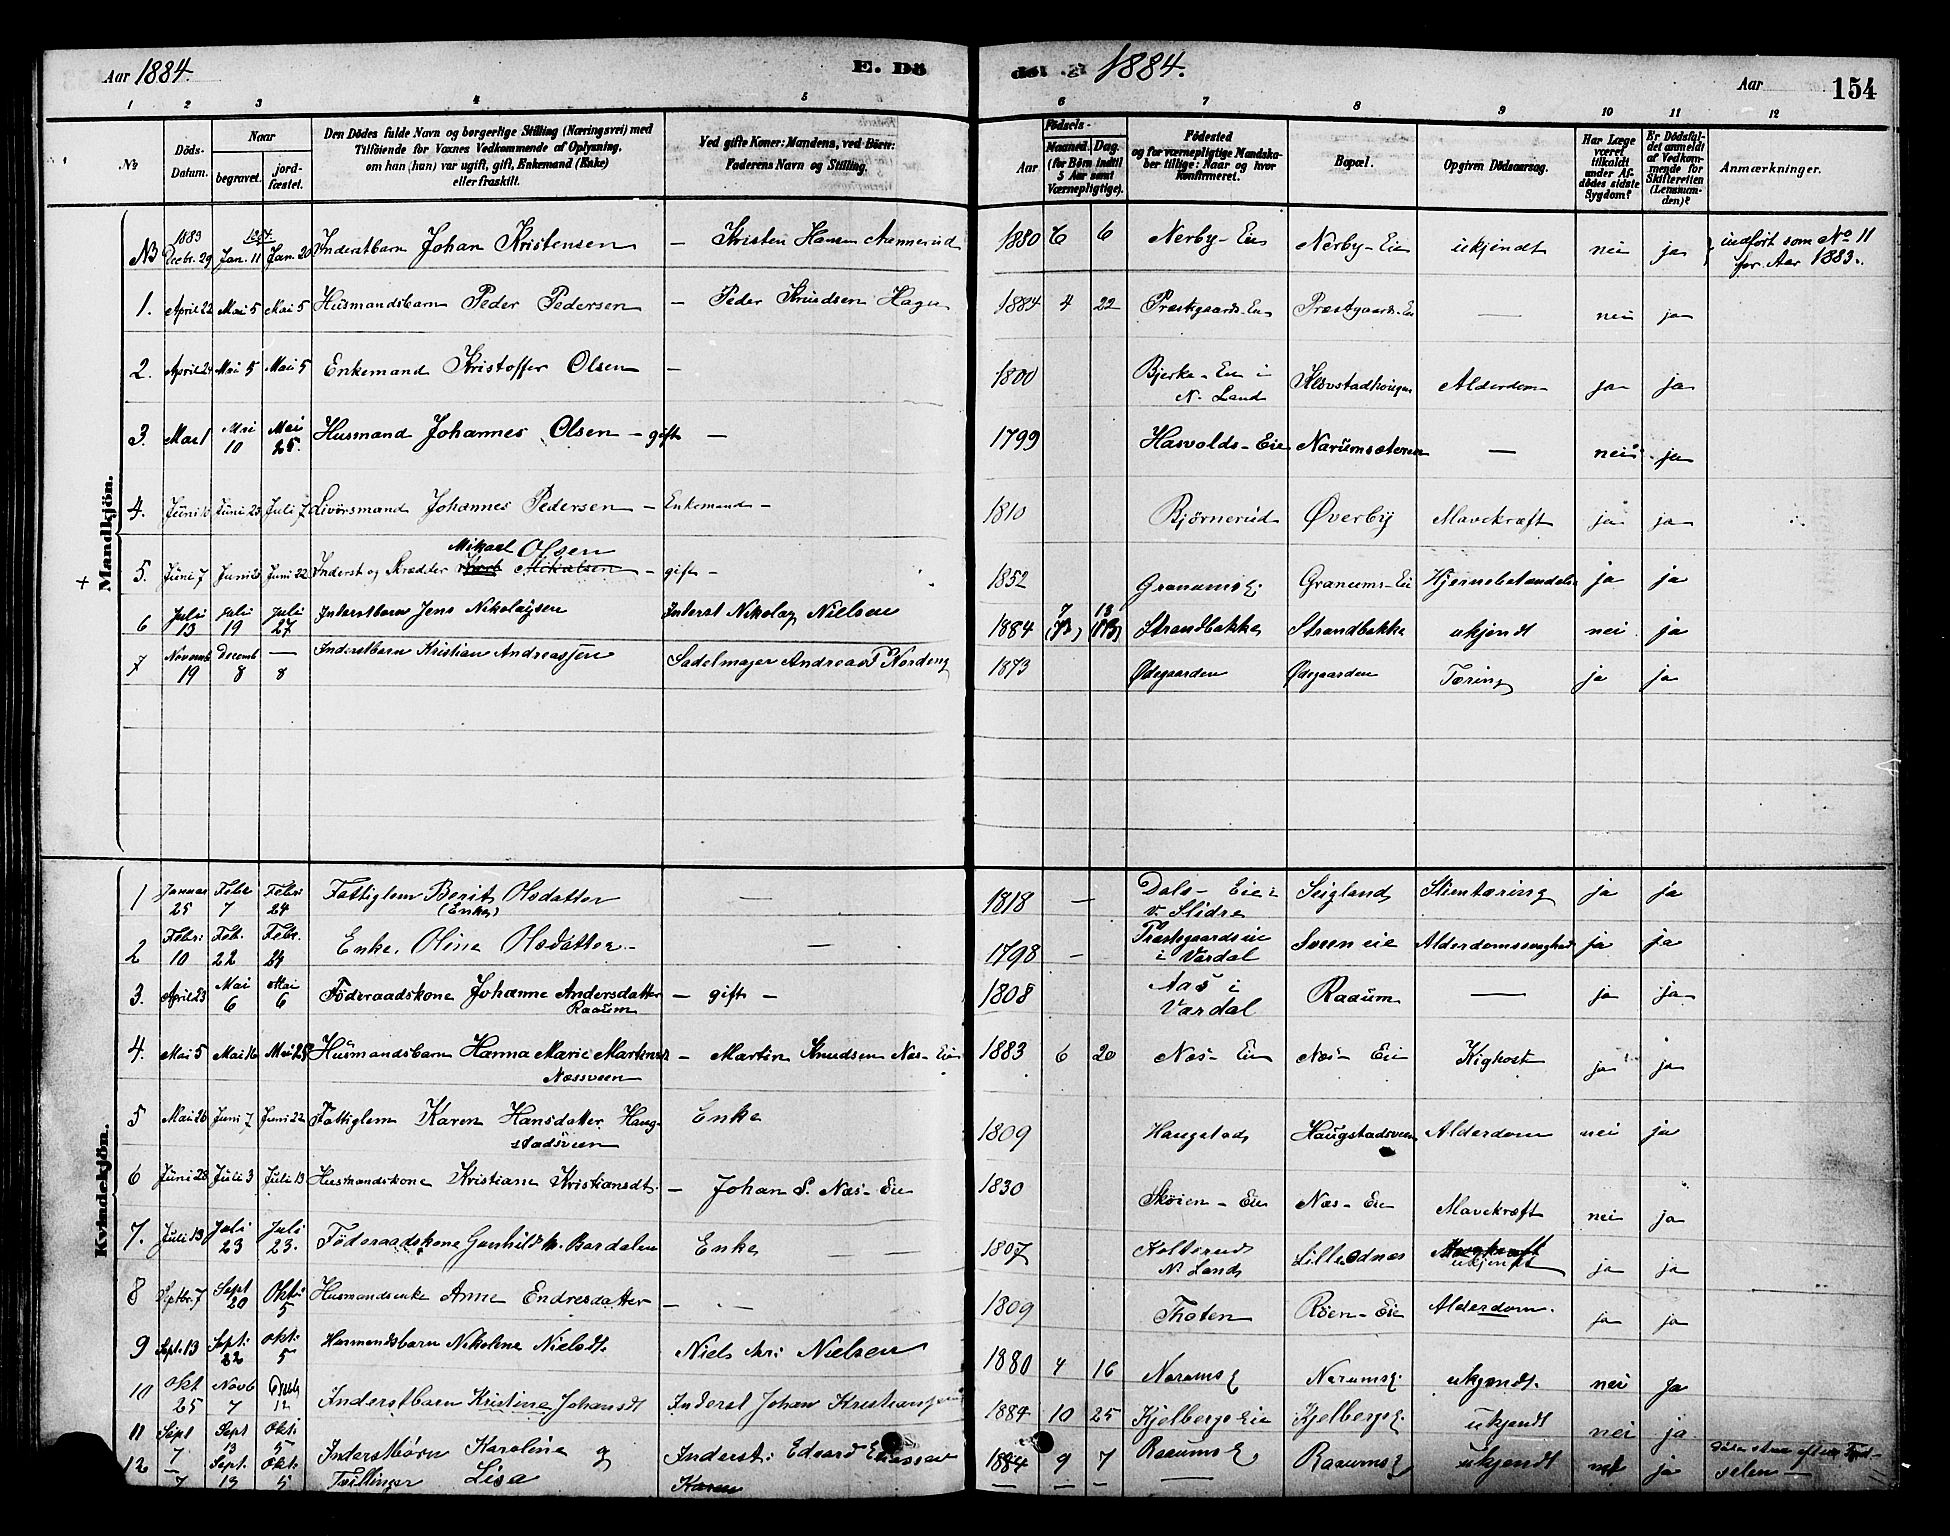 Aar 1884. E. Dö
de. E. 1884. Aar 154
1 2 3 4 5 6 7 8 9 10 11 12
No Döds-Datum. Naar begravet. jord-fæstet. Den Dödes fulde Navn og borgerlige Stilling (Næringsvei) med Tilföiende for Voxnes Vedkommende af Oplysning, om han (hun) var ugift, gift, Enkemand (Enke) eller fraskilt. Ved gifte Koner: Mandens, ved Börn: Faderens Navn og Stilling. Födsels- Aar Maaned. Dag. (for Börn indtil 5 Aar samt Værnepligtige). Födested og for værnepligtige Mandskaber tillige: Naar og hvor Konfirmeret. Bopæl. Opgiven Dödsaarsag. Har Læge været tilkaldt under Afdödes sidste Sygdom? Er Dödsfaldet anmeldt af Vedkommende for Skifteretten (Lensmanden)? Anmærkninger.
Mandkjön.
NB 1883 Decbr. 29 1884 Jan. 11 Jan. 20 Inderstbarn Johan Kristensen — Kristen Hansen 1880 6 6 Nerby-Eie Nerby-Eie ukjendt nei ja indført som No 11 for Aar 1883.
1. April 22 Mai 5 Mai 5 Husmandsbarn Peder Pedersen — Peder Knudsen Hagen 1884 4 22 Præstegaards-Eie Præstgaards-Eie — nei ja
2. April 24 Mai 5 Mai 5 Enkemand Kristoffer Olsen — 1800 Bjerke-Eie i N. Land Klovstadhougen Alderdom ja ja
3 Mai 1 Mai 10 Mai 25. Husmand Johannes Olsen — gift — 1799 Hasvolds-Eie Narumsæteren — nei ja
4. Juni Juni 23 Juli 7 Livörsmand Johannes Pedersen — Enkemand — 1810 Bjørnerud Øverby Mavekræft ja ja
+ 5. Juni 7 Juni Juni 22 Inderst og Skrædder Mikael Olsen Mikalsen — gift — 1852 Granumse Granums-Eie Hjernebetændelse ja ja
6 Juli 13 Juli 19 Juli 27 Inderstbarn Jens Nikolaysen Inderst Nikolay Nielsen 1884 7 13 Strandbakke Strandbakke ukjendt nei ja
7 Novemb 19 Decemb 8 — 8 Inderstbarn Kristian Andreassen Sadelmager Andreas P Nordeng 1873 Ødegaarden Ødegaarden Tæring ja ja
Kvindekjön.
1 Januar 25 Febr 7 Febr: 24 Fattiglem Berit Olsdatter (Enke) — 1818 — Dals-Eie i v. Slidre Seigland Slimtæring ja ja
2 Febr: 10 Feb. 22 Febr. 24 Enke, Oline Olsdatter — — 1798 — Præstegaardseie i Vardal Sveen eie Alderdomssvaghed ja ja
3. April 23 Mai 6 Mai 6 Föderaadskone Johanne Andersdatter Raaum — gift — 1808 Aas i Vardal Raaum — ja ja
4. Mai 5 Mai 16 Mai 25 Husmandsbarn Hanna Marie Martinsd Næssveen — Martin Knudsen Næs-Eie 1883 6 20 Næs-Eie Næs-Eie Kighoste ja ja
5 Mai 26 Juni 7 Juni 22 Fattiglem Karen Hansdatter Haugstadsveen Enke 1809 Haugstad Haugstadsveen Alderdom nei ja
6 Juni 28 Juli 3 Juli 13 Husmandskone Kristiane Kristiansdt. — Johan S. Næs-Eie 1830 Skøien-Eie Næs-Eie Mavekræft nei ja
7. Juli 13 Juli 23 Juli 23. Föderaadskone Gunhild Bardalen Enke — — 1807 Kolterud N. Land Lilleodnæs ukjendt ja ja
8 Septbr. 7 Sept 20 Oktr: 5 Husmandsenke Anne Endresdatter — — 1809 Thoten Røen-Eie Alderdom. ja ja
9 Sept. 13 Sept. 22 Okt: 5 Husmandsbarn Nikoline Nielsdt. Niels Nielsen 1880 4 16 Narumse Narumse. ukjendt. nei ja
10 Okt 25 Novb 7 Decb 12 Inderstbarn Kristine Johansdt Inderst Johan Kristiansen 1884 10 25 Kjelbergs Eie Kjelbergse. ukjendt nei ja
11 Sept 7 Sept 13 Okt: 5 Inderstbörn Karoline og Inderst: Edvard Eliassen 1884 9 7 Raaumse Raaumse ukjendt nei ja
12 — 7 Sept. 13 Okt: 5 Tvillinger Lisa Karen — — — —